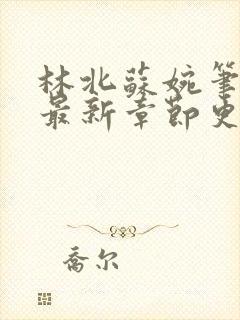 林北蘇婉筆
最新章節史
喬尔